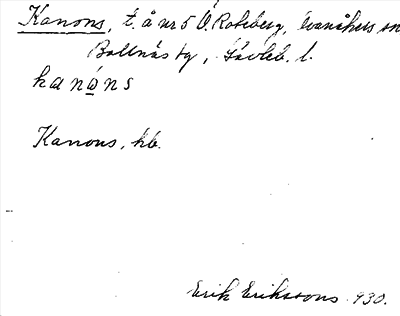 Kanons, t. å nr 5 Ö. Roteberg, Ovanåkers sn
Bollnäs tg, Gävleb. l.
kanòns
Kanons, hb.
Erik Eriksson 1930.